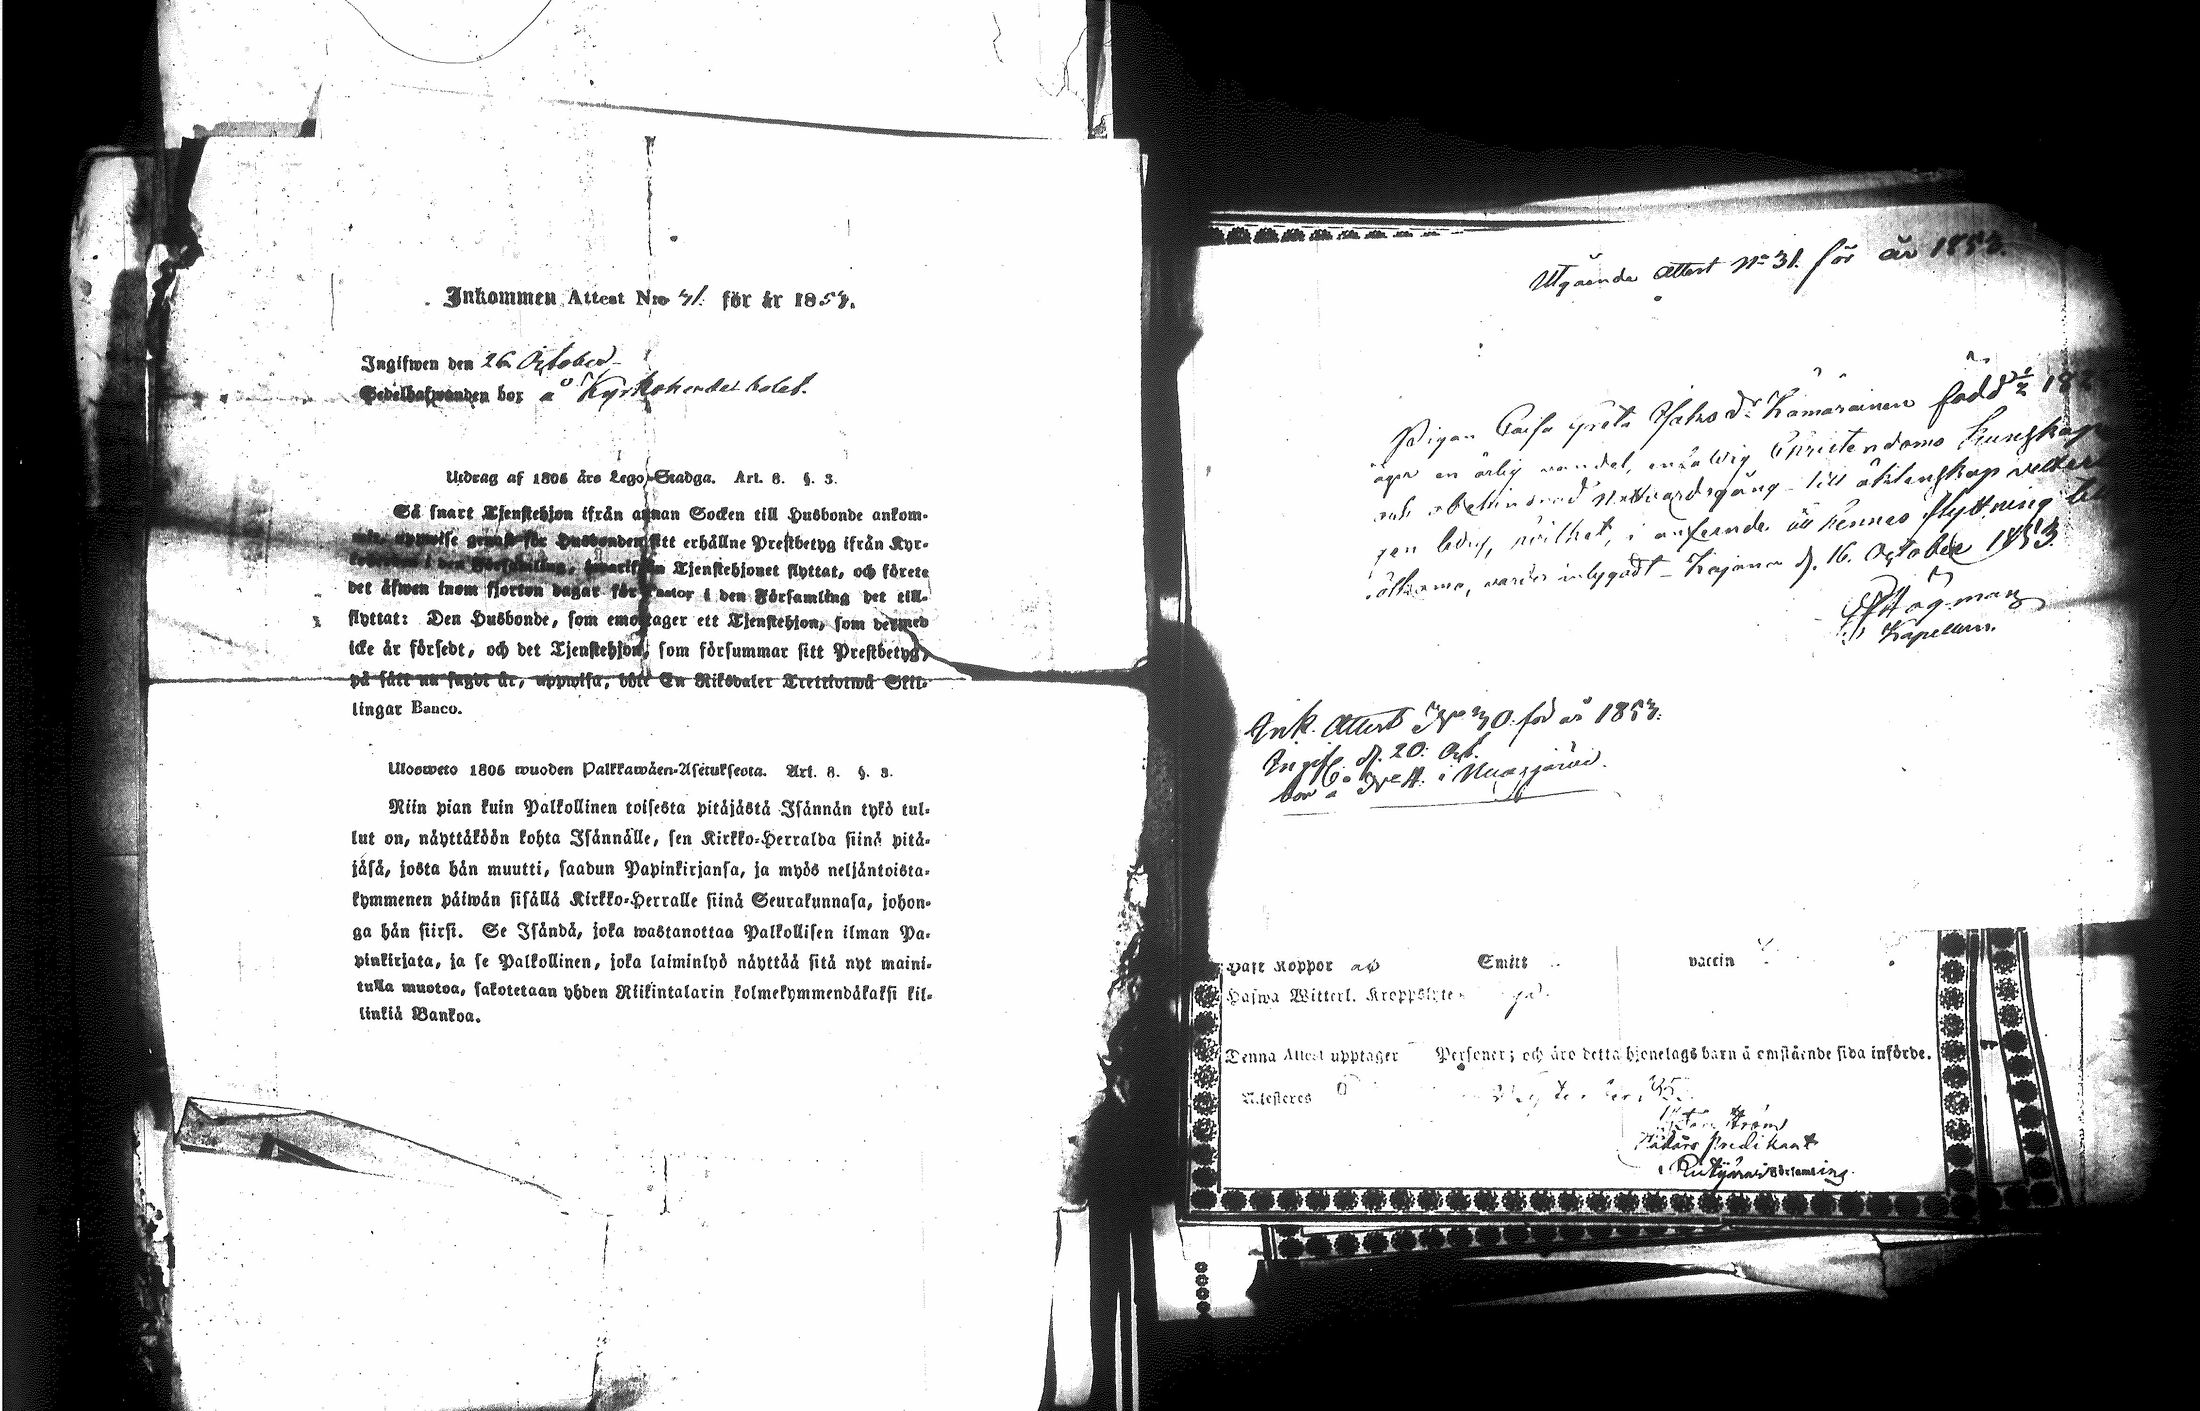 Inkommen Attest Nro 31. för år 1853.
Ingifwen den 26 October
Sedelhafwanden bor å Kyrkoherdebolet.
Utdrag af 1805 års Lego-Stadga. Art. 8. §. 3.
Så snart Tjenstehjon ifrån annan Socken till Husbonde ankom-
mit, uppwise genast för Husbonden sitt erhållne Prestbetyg ifrån Kyr-
i den Församling, hwarifrån Tjenstehjonet flyttat, och förete
det äfwen inom fjorton dagar för Pastor i den Församling det till-
flyttat: Den Husbonde, som emottager ett Tjenstehjon, som dermed
icke är försedt, och det Tjenstehjon, som försummar sitt Prestbetyg,
på sätt nu sagdt är, uppwisa, böte En Riksdaler Trettiotwå Skil-
lingar Banco.
Ulosweto 1805 wuoden Palkkawäen-Asetuksesta. Art. 8. §. 3.
Niin pian kuin Palkollinen toisesta pitäjästä Isännän tykö tul-
lut on, näyttäköön kohta Isännälle, sen Kirkko-Herralda siinä pitä-
jäsä, josta hän muutti, saadun Papinkirjansa, ja myös neljäntoista-
kymmenen päiwän sisällä Kirkko-Herralle siinä Seurakunnasa, johon-
ga hän siirsi. Se Isändä, joka wastanottaa Palkollisen ilman Pa-
pinkirjata, ja se Palkollinen, joka laiminlyö näyttää sitä nyt maini-
tulla muotoa, sakotetaan yhden Riikintalarin kolmekymmendäkaksi kil-
linkiä Bankoa.
Utgående Attest No 31. för år 1853.
Pigan Caisa Greta Jakos dr Kämäräinen född
äger en ärlig vandel, enfaldig Christendoms kunskap
och obehindrad Nattvardsgång till äktenskap
gen ledig, hvilket, i anseende till hennes flyttning
warder intygadt Kajana d. 16. October 1853.
Högman
Kapellan.
Ink. Attest No 30 för år 1853.
Ingif. d. 20. Oct.
bor å No 11. i
Haft Koppor Emitt vaccin
Hafwa Witterl. Kroppslyte
Denna Attest upptager Personer; och äro detta hjonelags barn å omstående sida införde.
Attesteres
Predikant
Församling